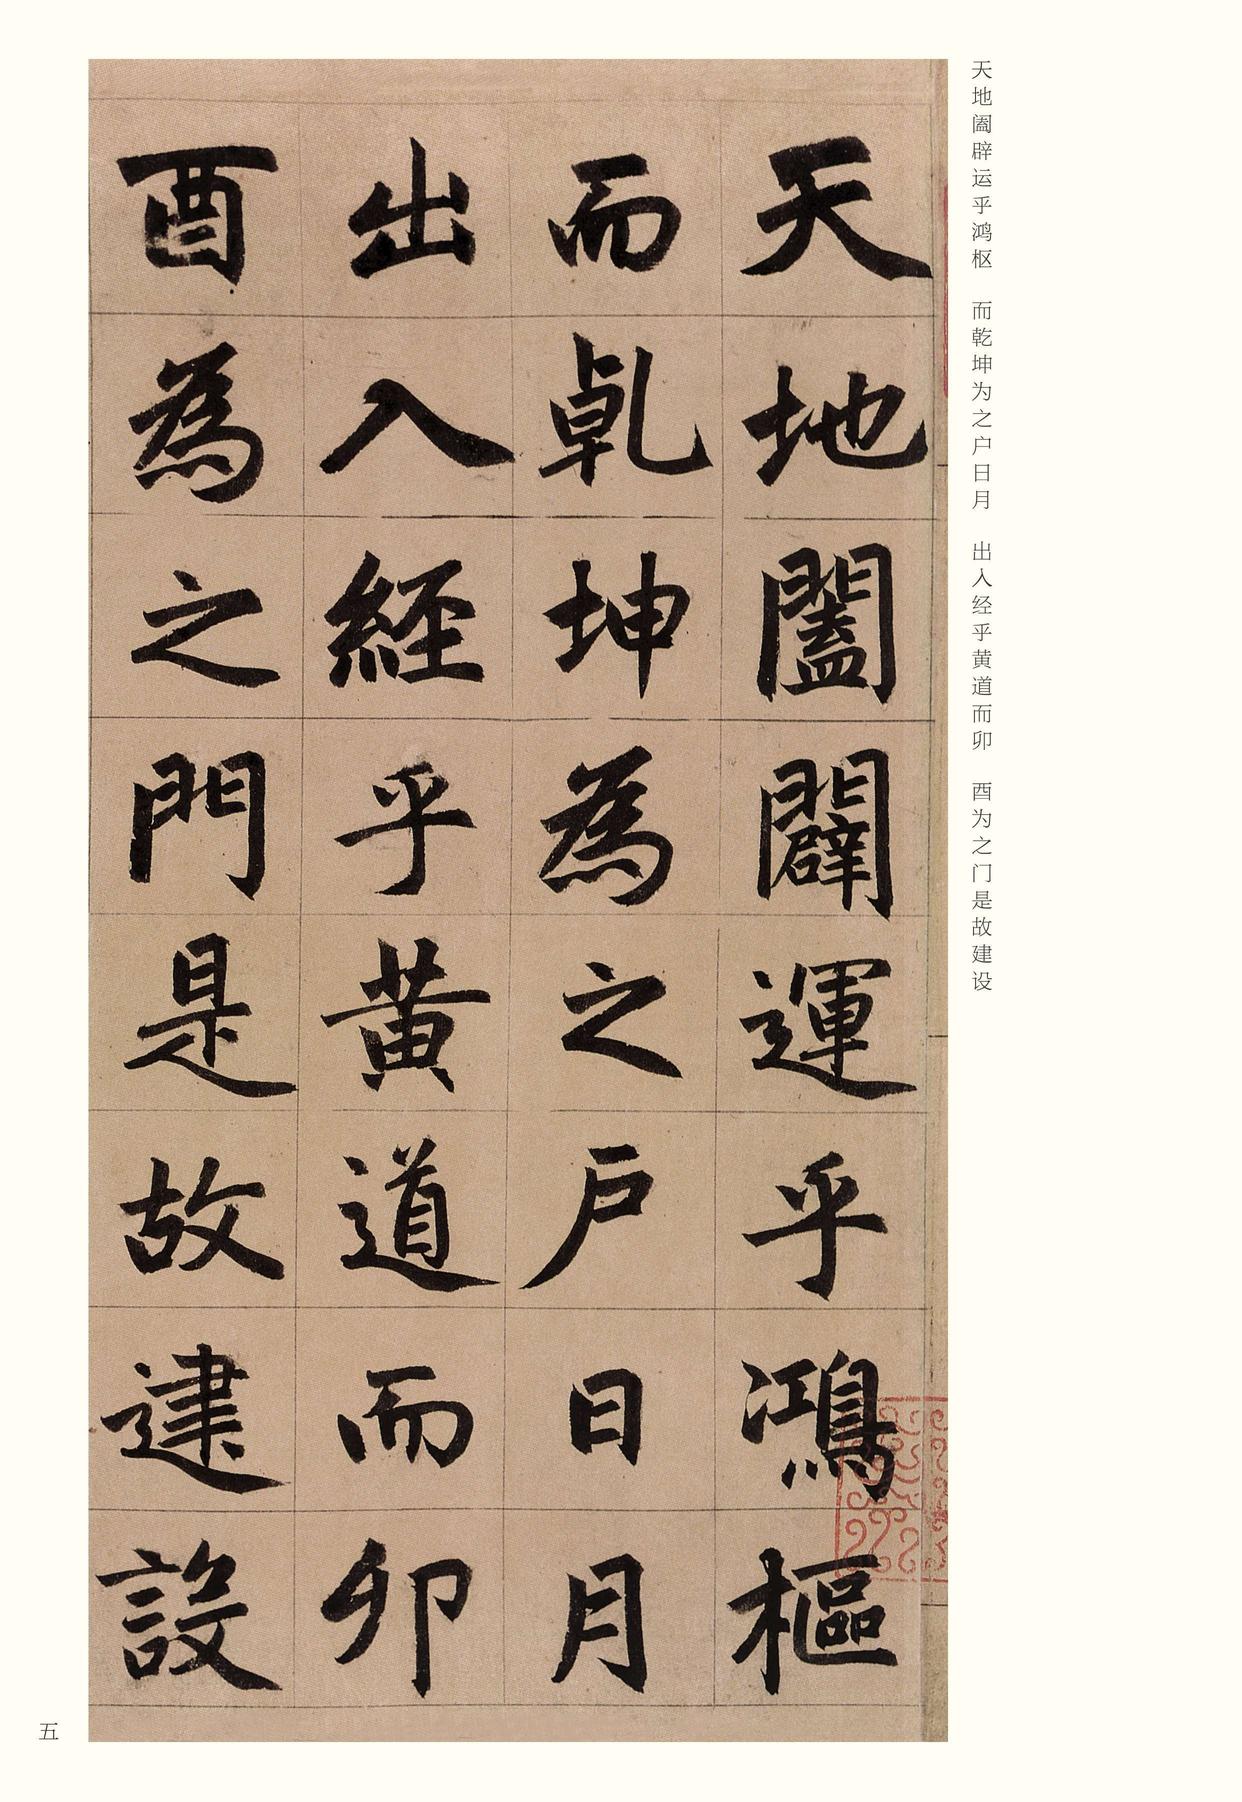 天地阖辟运乎鸿枢　而乾坤为之户日月　出入经乎黄道而卯　酉为之门是故建设
天地闔闢運乎鴻樞
而乹坤為之户日月
出入經乎黄道而卯
酉為之門是故建設
五